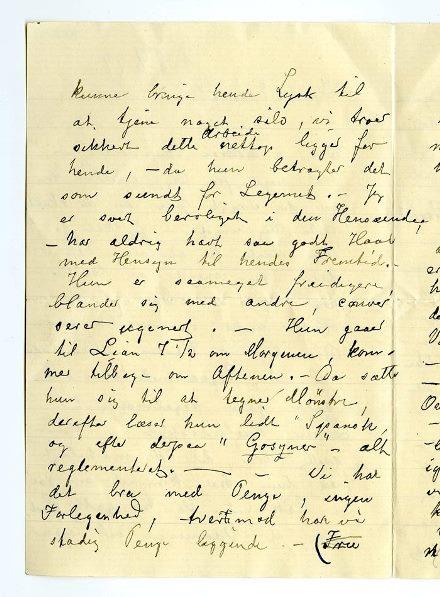 kunne bringe hende Lyst til
at tjene noget selv, vi troer
sikkert dette arbeide nettop ligger for
hende, – da hun betragter det
som sundt for Legemet. – Jeg
er svært beroliget i den Henseende,
– har aldrig havt saa godt Haab
med Hensyn til hendes Fremtid. –
Hun er saameget frædigere,
blander sig med andre, conver
serer ugenert. – Hun gaaer
til Lian 7 1/2 om Morgenen, kom-
mer tilbage om Aftenen. – Da sætter
hun sig til at tegne Mønstre,
derefter læser hun lidt "Spansk,
og efter derpaa " – alt
reglementeret. – –
Vi har
det bra med Penge, ingen
Forlegenhed, tvertimod har vi
stadig Penge liggende. – (Fru